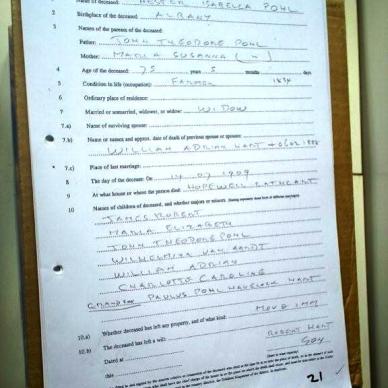 1 Name of deceased: HESTER ISABELLA POHL
2 Birthplace of the deceased: ALBANY
3 Names of the parents of the deceased:
Father: JOHN THEODORE POHL
Mother: MARIA SUSANNA
4 Age of the deceased: 75 years 5 months days
5 Condition in life (occupation): FARMER 1834
6 Ordinary place of residence:
7 Married or unmarried, widower, or widow: WIDOW
7.a) Name of surviving spouse:
7.b) Name or names and approx. date of death of previous spouse or spouses:
WILLIAM ADRIAN HART
7.c) Place of last marriage:
8 The day of the decease: On 14.07.1909
9 At what house or where the person died: HOPEWELL CATHCART
10 Names of children of deceased, and whether majors or minors.
JAMES ROBERT
MARIA ELIZABETH
JOHN THEODORE POHL
WILHELMINA VAN AARDT
WILLIAM ADRIAN
CHARLOTTE CAROLINE
PAULUS POHL HART
10.a) Whether deceased has left any property, and of what kind: MOV & IMM
10.b) The deceased has left a will:
Dated at ROBERT HART
this SON
21